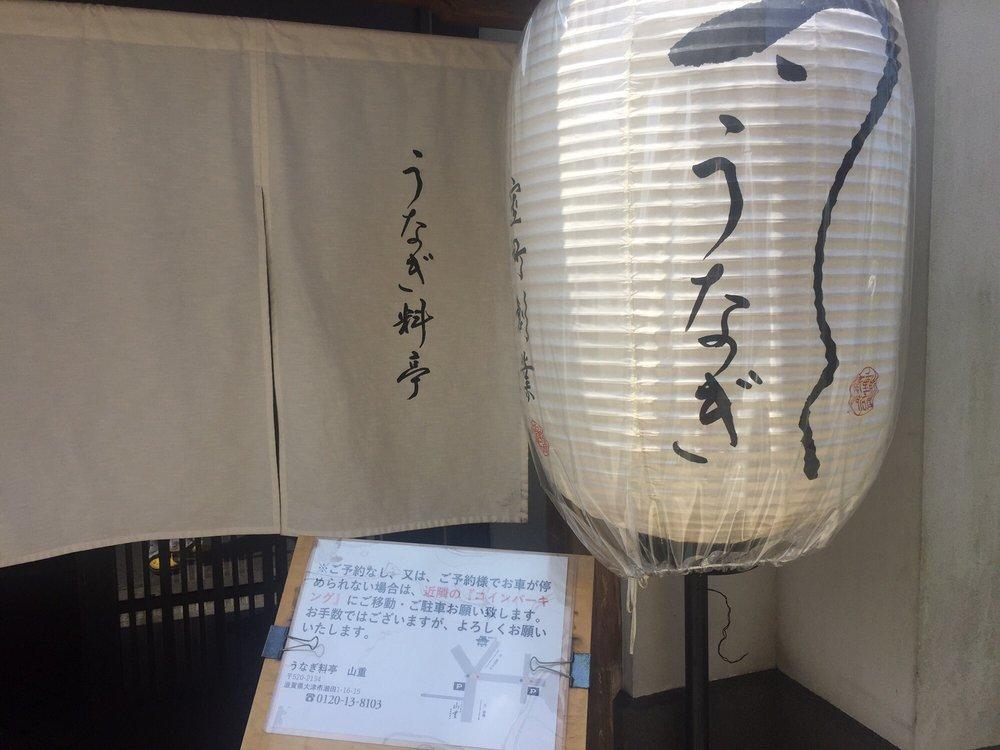 うなぎ料亭
うなぎ
※ご予約なし、又は、ご予約様でお車が停
められない場合は、近隣の『コインパーキ
ング』にご移動・ご駐車お願い致します。
お手数ではございますが、よろしくお願い
いたします。
うなぎ料亭 山重
〒520-2134
滋賀県大津市瀬田1-16-15
☎0120-13-8103
P
P
山重